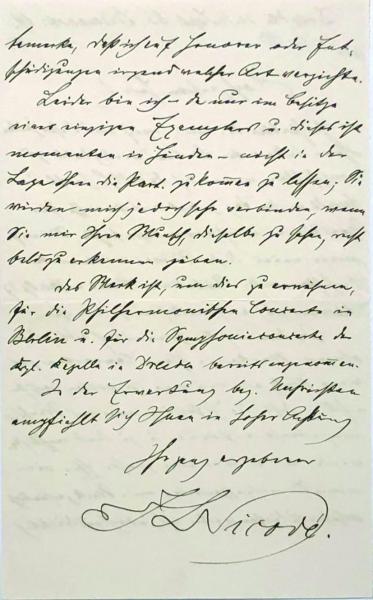 bemerke, daß ich auf Honorar oder Ent-
schädigungen irgend welcher Art verzichte.
Leider bin ich – da nur im Besitze
eines einzigen Exemplars u. dieses ist
momentan in Händen – nicht in der
Lage Ihnen die Part. zukommen zu lassen; Sie
würden mich jedoch sehr verbinden, wenn
Sie mir Ihren Wunsch, dieselbe zu sehen, recht
bald zu erkennen geben.
Das Werk ist, um dies zu erwähnen,
für die Philharmonischen Concerte in
Berlin u. für die Symphonieconcerte der
Kgl. Kapelle in Dresden bereits angenommen.
In der Erwartung bez. Nachrichten
empfiehlt sich Ihnen in hoher Achtung
Ihr ganz ergebener
JL Nicodé.